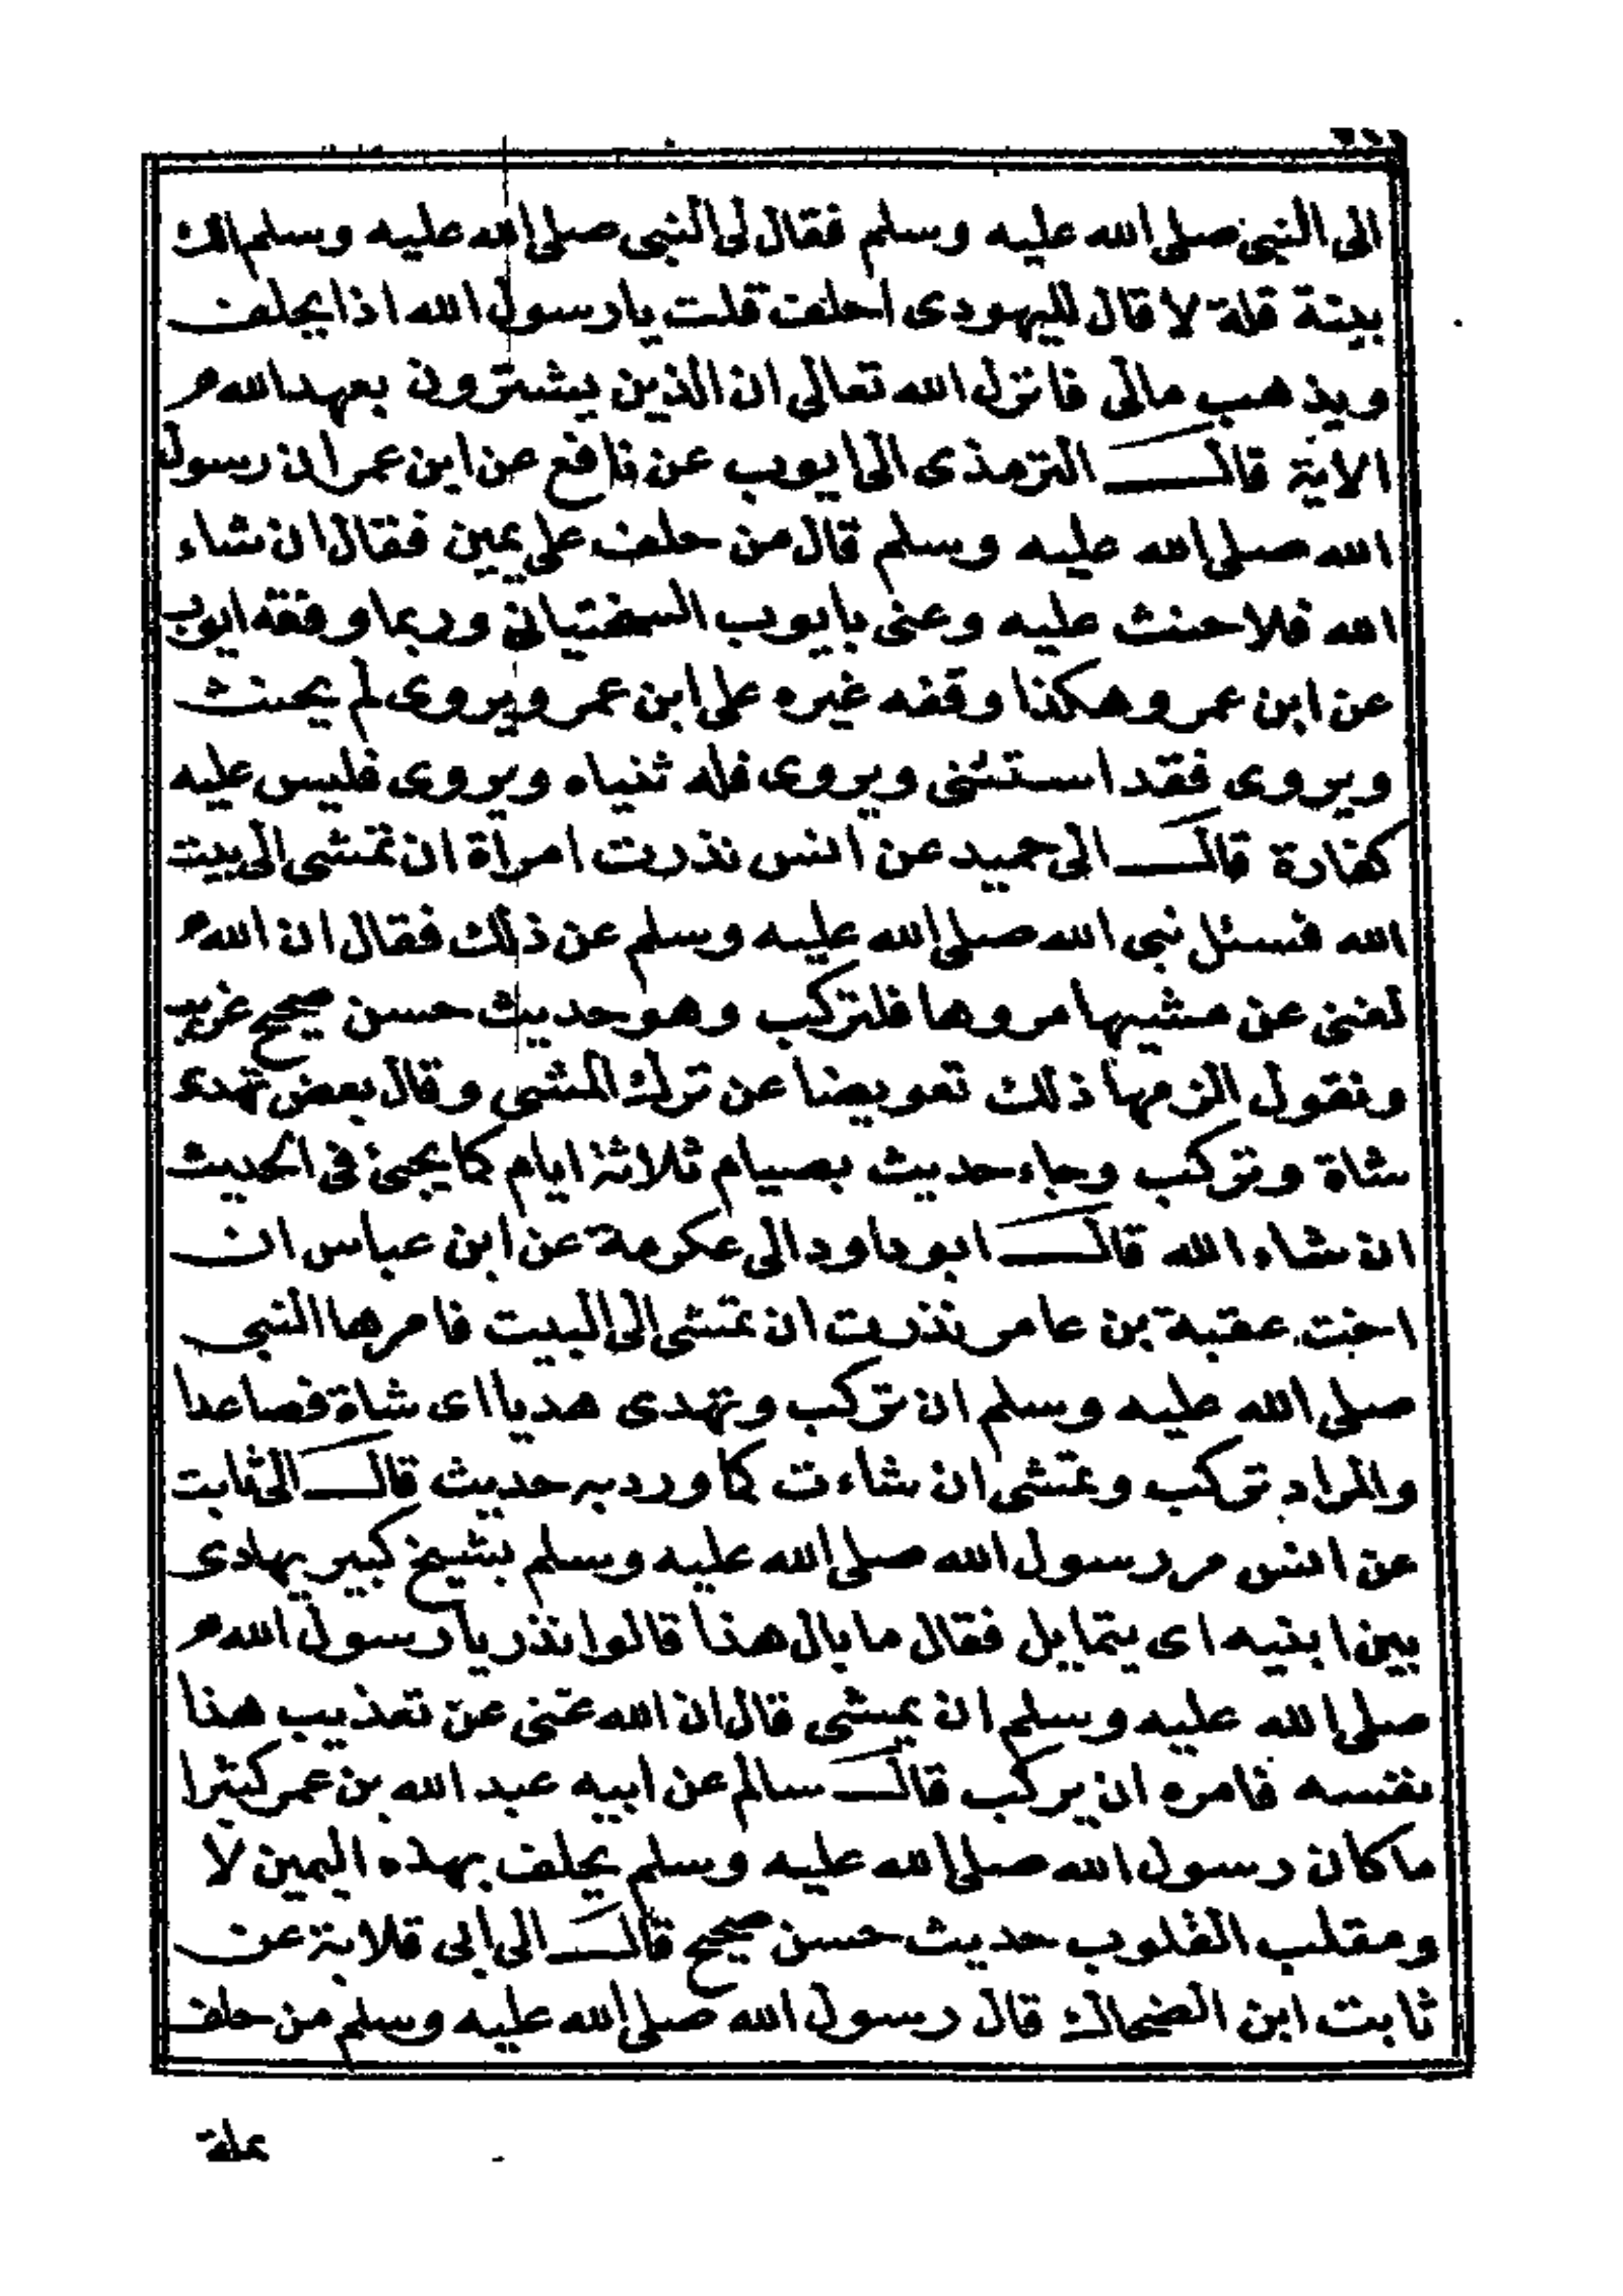 الى النبى صلى الله عليه وسلم فقال لى النبى صلى الله عليه وسلم الك
بينة قلة لا قال لليهودى احلف قلت يا رسول الله اذا يحلف
ويذهب مالى فانزل الله تعالى ان الذين يشترون بعهد الله
الاية قال الترمذى الى ايوب عن نافع عن ابن عمر ان رسول
الله صلى الله عليه وسلم قال من حلف على يمين فقال ان شاء
الله فلا حنث عليه وعنى بايوب السختيانى وربما وقفه ايوب
عن ابن عمر وهكذا وقفه غيره على ابن عمر ويروى لم يحنث
ويروى فقد استثنى ويروى فله ثنياه ويروى فليس عليه
كفارة قال الى حميد عن انس نذرت امراة ان تمشى الى بيت
الله فسئل نبى الله صلى الله عليه وسلم عن ذلك فقال ان الله
لغنى عن مشيها مروها فلتركب وهو حديث حسن صحيح غريب
ونقول الزمها ذلك تعويضا عن ترك المشى وقال بعض تهدى
شاة وتركب وجاء حديث بصيام ثلاثة ايام كما يجئ فى الحديث
ان شاء الله قال ابو داود الى عكرمة عن ابن عباس ان
اخت عقبة بن عامر نذرت ان تمشى الى البيت فامرها النبى
صلى الله عليه وسلم ان تركب وتهدى هديا اى شاة فصاعدا
والمراد تركب وتمشى ان شاءت كما ورد به حديث قال الى ثابت
عن انس مر رسول الله صلى الله عليه وسلم بشيخ كبير يهادى
بين ابنيه اى يتمايل فقال ما بال هذا قالوا نذر يا رسول الله
صلى الله عليه وسلم ان يمشى قال ان الله غنى عن تعذيب هذا
نفسه فامره ان يركب قال سالم عن ابيه عبد الله بن عمر كثيرا
ما كان رسول الله صلى الله عليه وسلم يحلف بهذه اليمين لا
ومقلب القلوب حديث حسن صحيح قال الى ابى قلابة عن
ثابت ابن الضحاك قال رسول الله صلى الله عليه وسلم من حلف
بملة